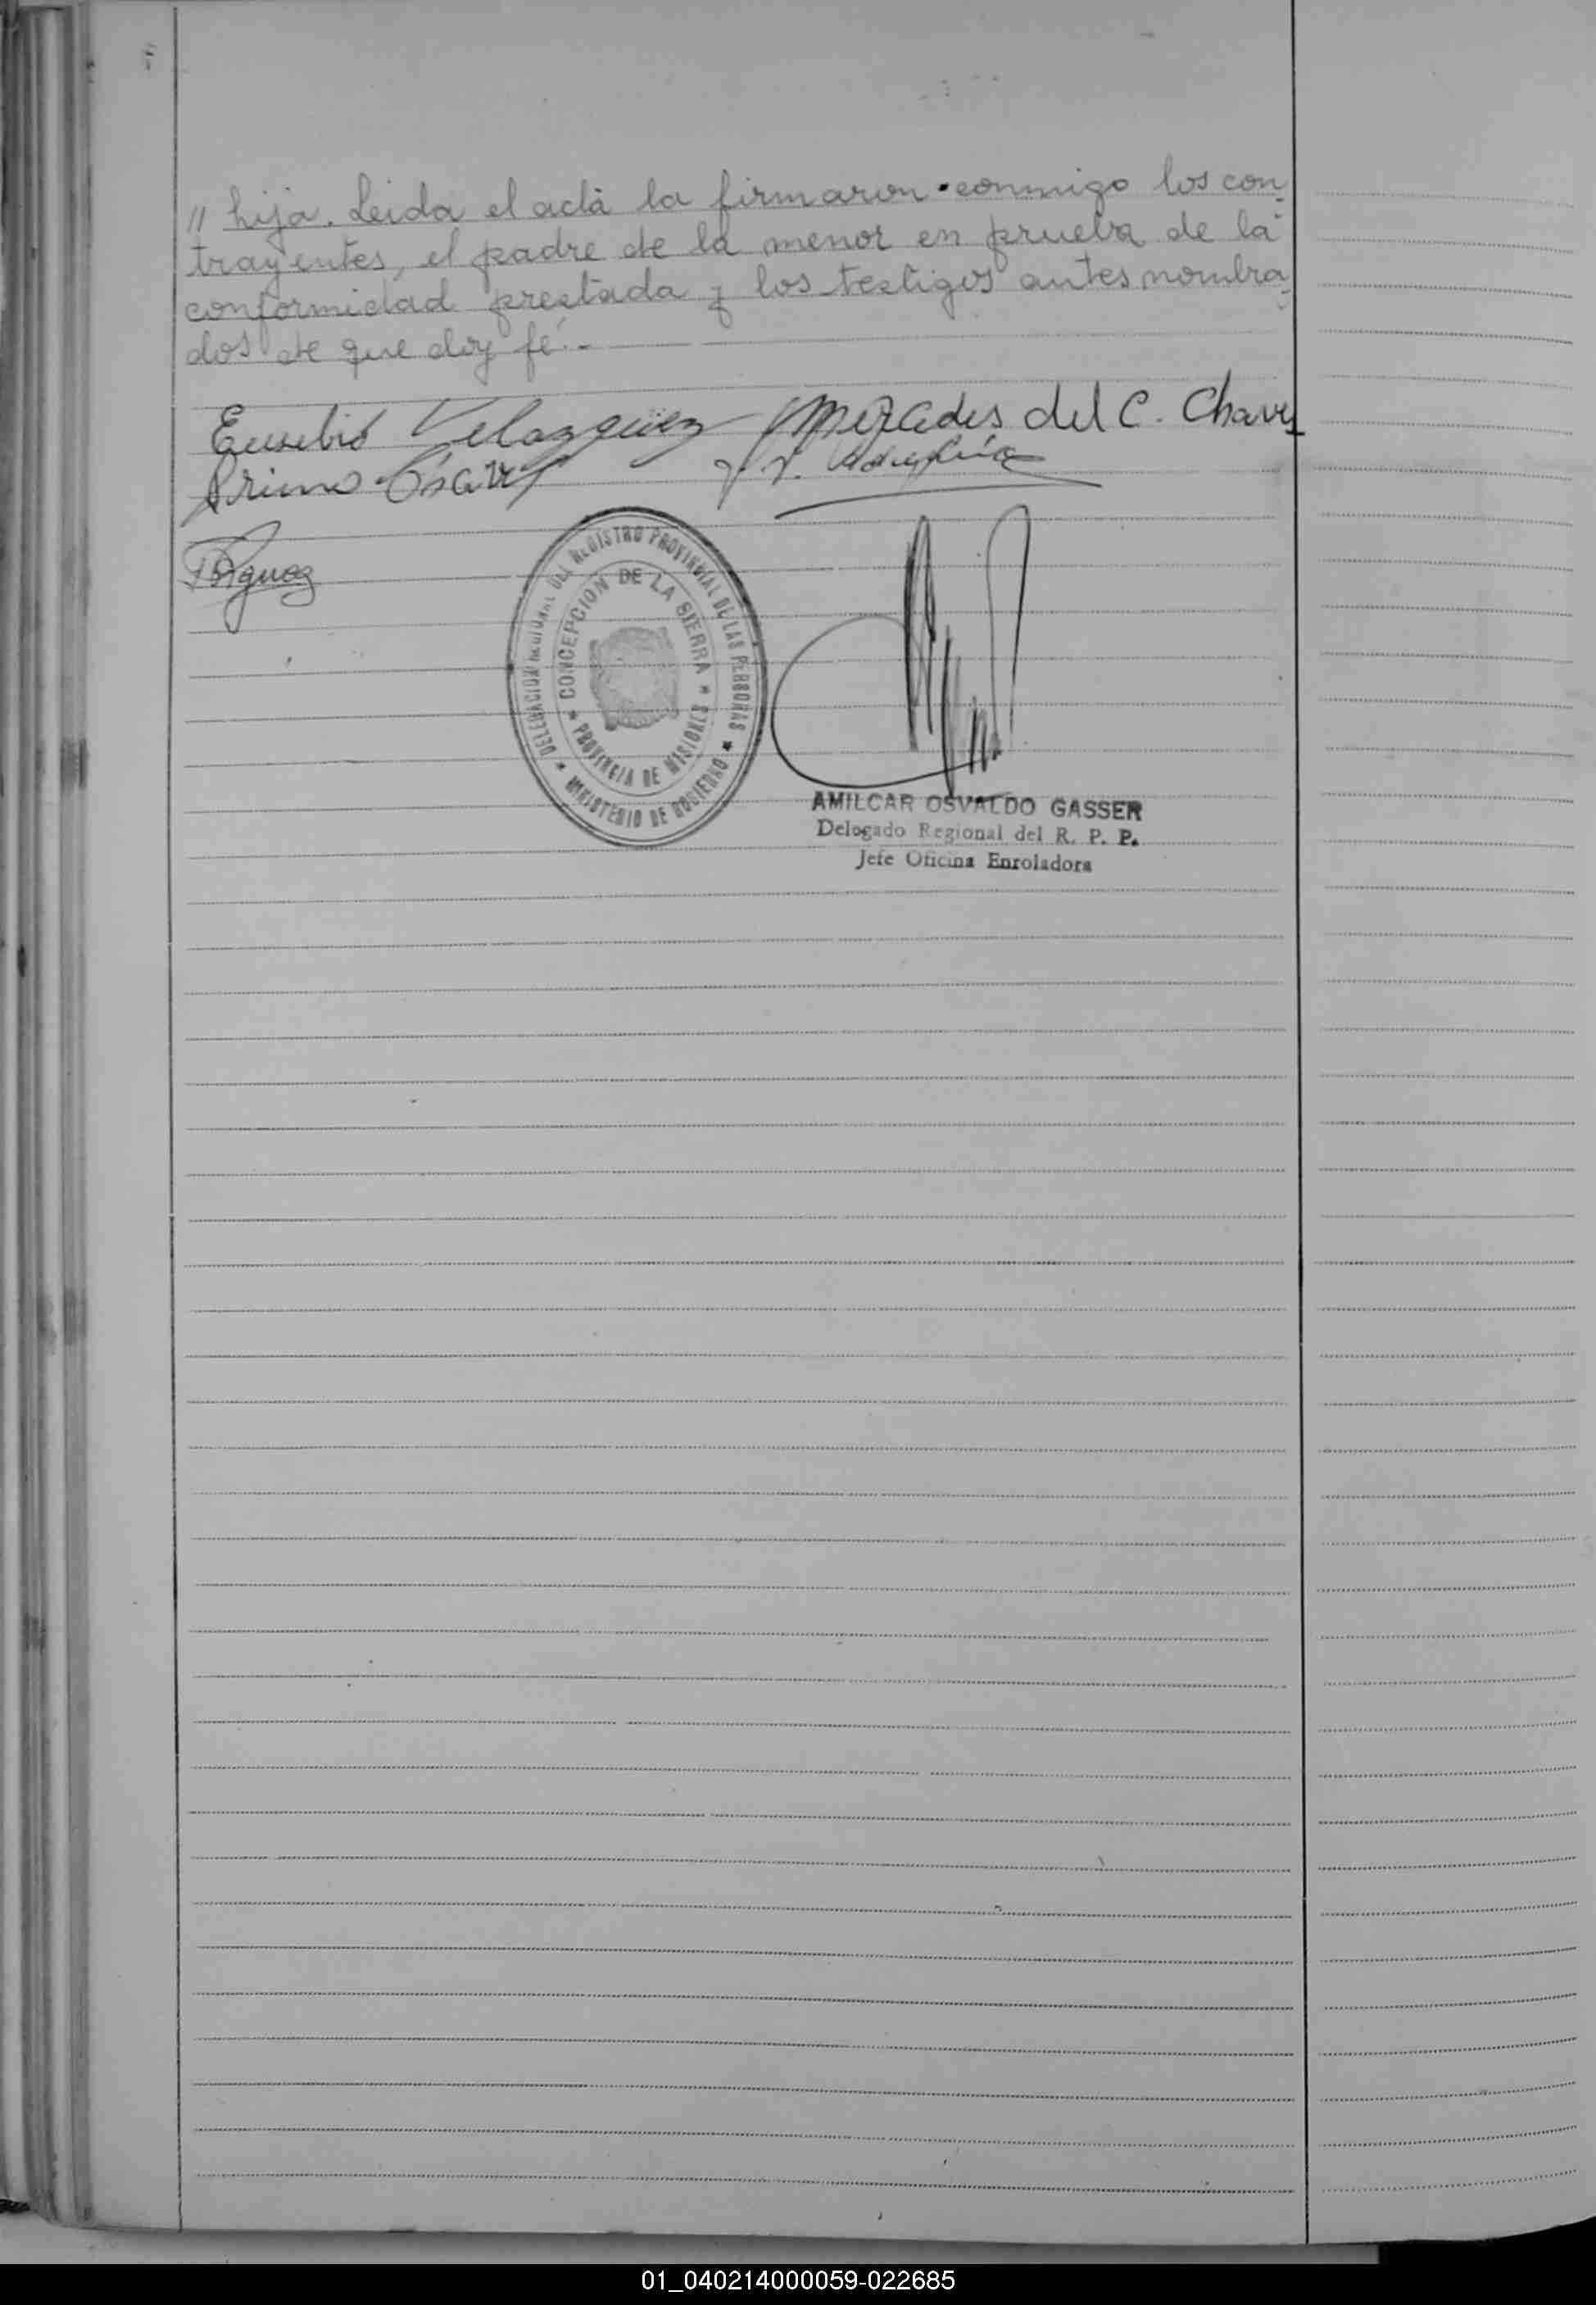 // hija. Leida el acta la firmaron conmigo los con
trayentes, el padre de la menor en prueba de la
conformidad prestada y los testigos antes nombra
dos de que doy fé.-
Eusebio Velazquez Mercedes del C. Chavez
Primo
DELEGACION REGIONAL DEL REGISTRO PROVINCIAL DE LAS PERSONAS
CONCEPCION DE LA SIERRA
PROVINCIA DE MISIONES
MINISTERIO DE GOBIERNO
AMILCAR OSVALDO GASSER
Delegado Regional del R. P. P.
Jefe Oficina Enroladora
01_040214000059-022685